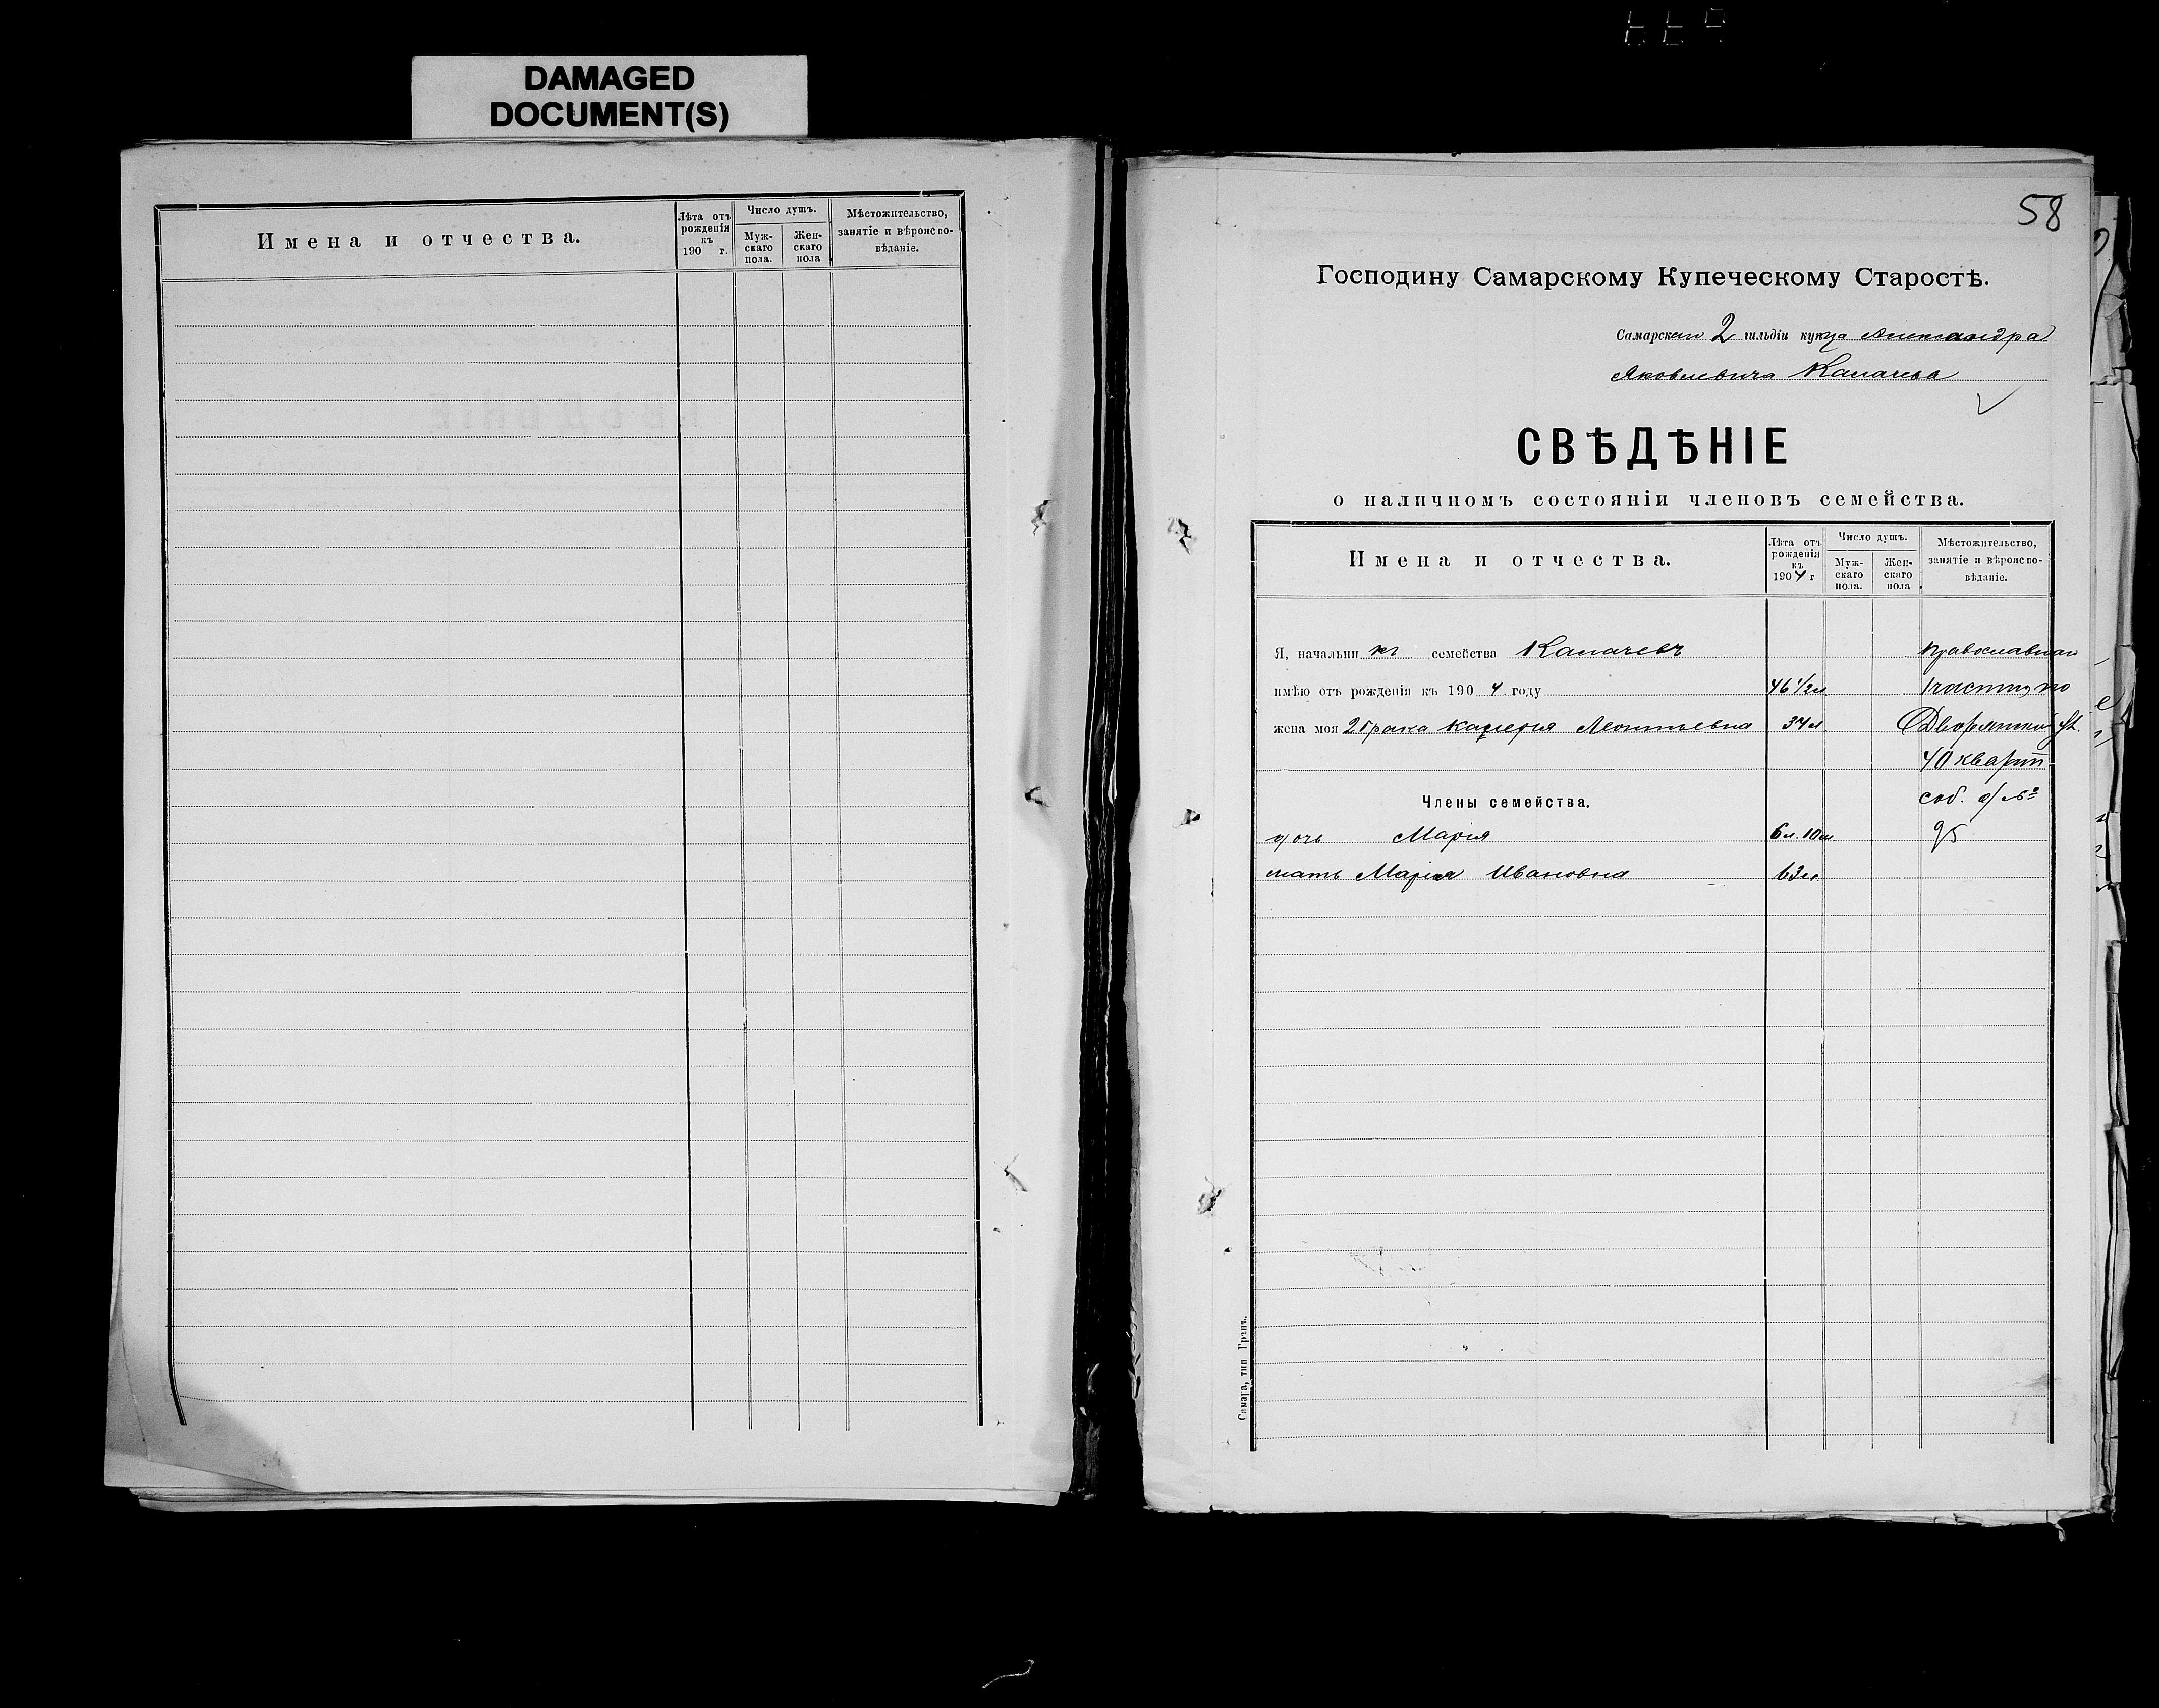 DAMAGED
DOCUMENT(S)
Имена и отчества.
Лѣта отъ рожденія къ 190 г.
Число душъ.
Муж-скаго пола.
Жен-скаго пола
Мѣстожительство, занятіе и вѣроиспо-вѣданіе.
58
Господину Самарскому Купеческому Старостѣ.
Самарскаго 2 гильдіи купца Александра
Яковлевича Калачева
СВѢДѢНІЕ
о наличномъ состояніи членовъ семейства.
Имена и отчества.
Лѣта отъ рожденія къ 1904 г
Число душъ.
Муж-скаго пола.
Жен-скаго пола
Мѣстожительство, занятіе и вѣроиспо-вѣданіе.
Я, начальникъ семейства Калачевъ православнаго
имѣю отъ рожденія къ 1904 году 46 1/2 л
жена моя 2 брака Леонтьевна 34 л Дворянской ул.
40 кварт
Члены семейства. соб. д/№
дочь Марія 6 л. 10 м 95
мать Марія Ивановна 63 л.
Самара, тип Гранъ.